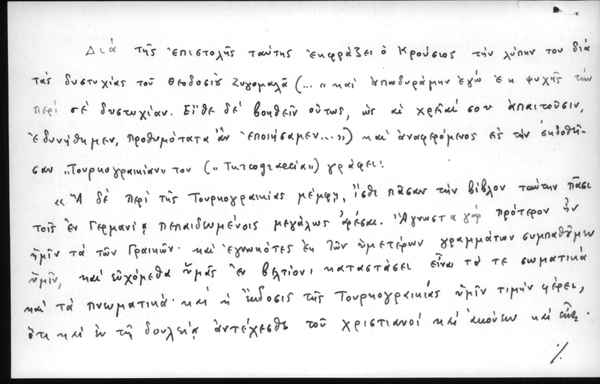 Διά τῆς ἐπιστολῆς ταύτης ἐκφράζει ὁ Κρούσιος τήν λύπην του διά
τάς δυστυχίας τοῦ Θεοδοσίου Ζυγομαλᾶ (... «καί ἀπωδυράμην ἐγώ ἐκ ψυχῆς τήν
περί σέ δυστυχίαν. Εἴθε δέ βοηθεῖν οὕτως, ὡς αἱ χρεῖαί σου ἀπαιτοῦσιν,
ἐδυνήθημεν, προθυμότατα ἄν ἐποιήσαμεν...») καί ἀναφερόμενος εἰς τήν ἐκδοθεῖ-
σαν "Τουρκογραικίαν" του ("Turcograecia") γράφει:
«Ἅ δέ περί τῆς Τουρκογραικίας μέμφῃ, ἴσθι πᾶσαν τήν βίβλον ταύτην πᾶσι
τοῖς ἐν Γερμανίᾳ πεπαιδωμένοις μεγάλως ἀρέσαι. Ἄγνωστα γάρ πρότερον ἦν
ἡμῖν τά τῶν Γραικῶν· καί ἐγνωκότες ἐκ τῶν ὑμετέρων γραμμάτων συμπαθοῦμεν
ὑμῖν, καί εὐχόμεθα ὑμᾶς ἐν βελτίονι καταστάσει εἶναι τά τε σωματικά
καί τά πνωματικά· καί ἡ ἔκδοσις τῆς Τουρκογραικίας ὑμῖν τιμήν φέρει,
ὅτι καί ἐν τῇ δουλείᾳ ἀντέχεσθε τοῦ χριστιανοί καί ἀκούειν καί εἶναι.
./.